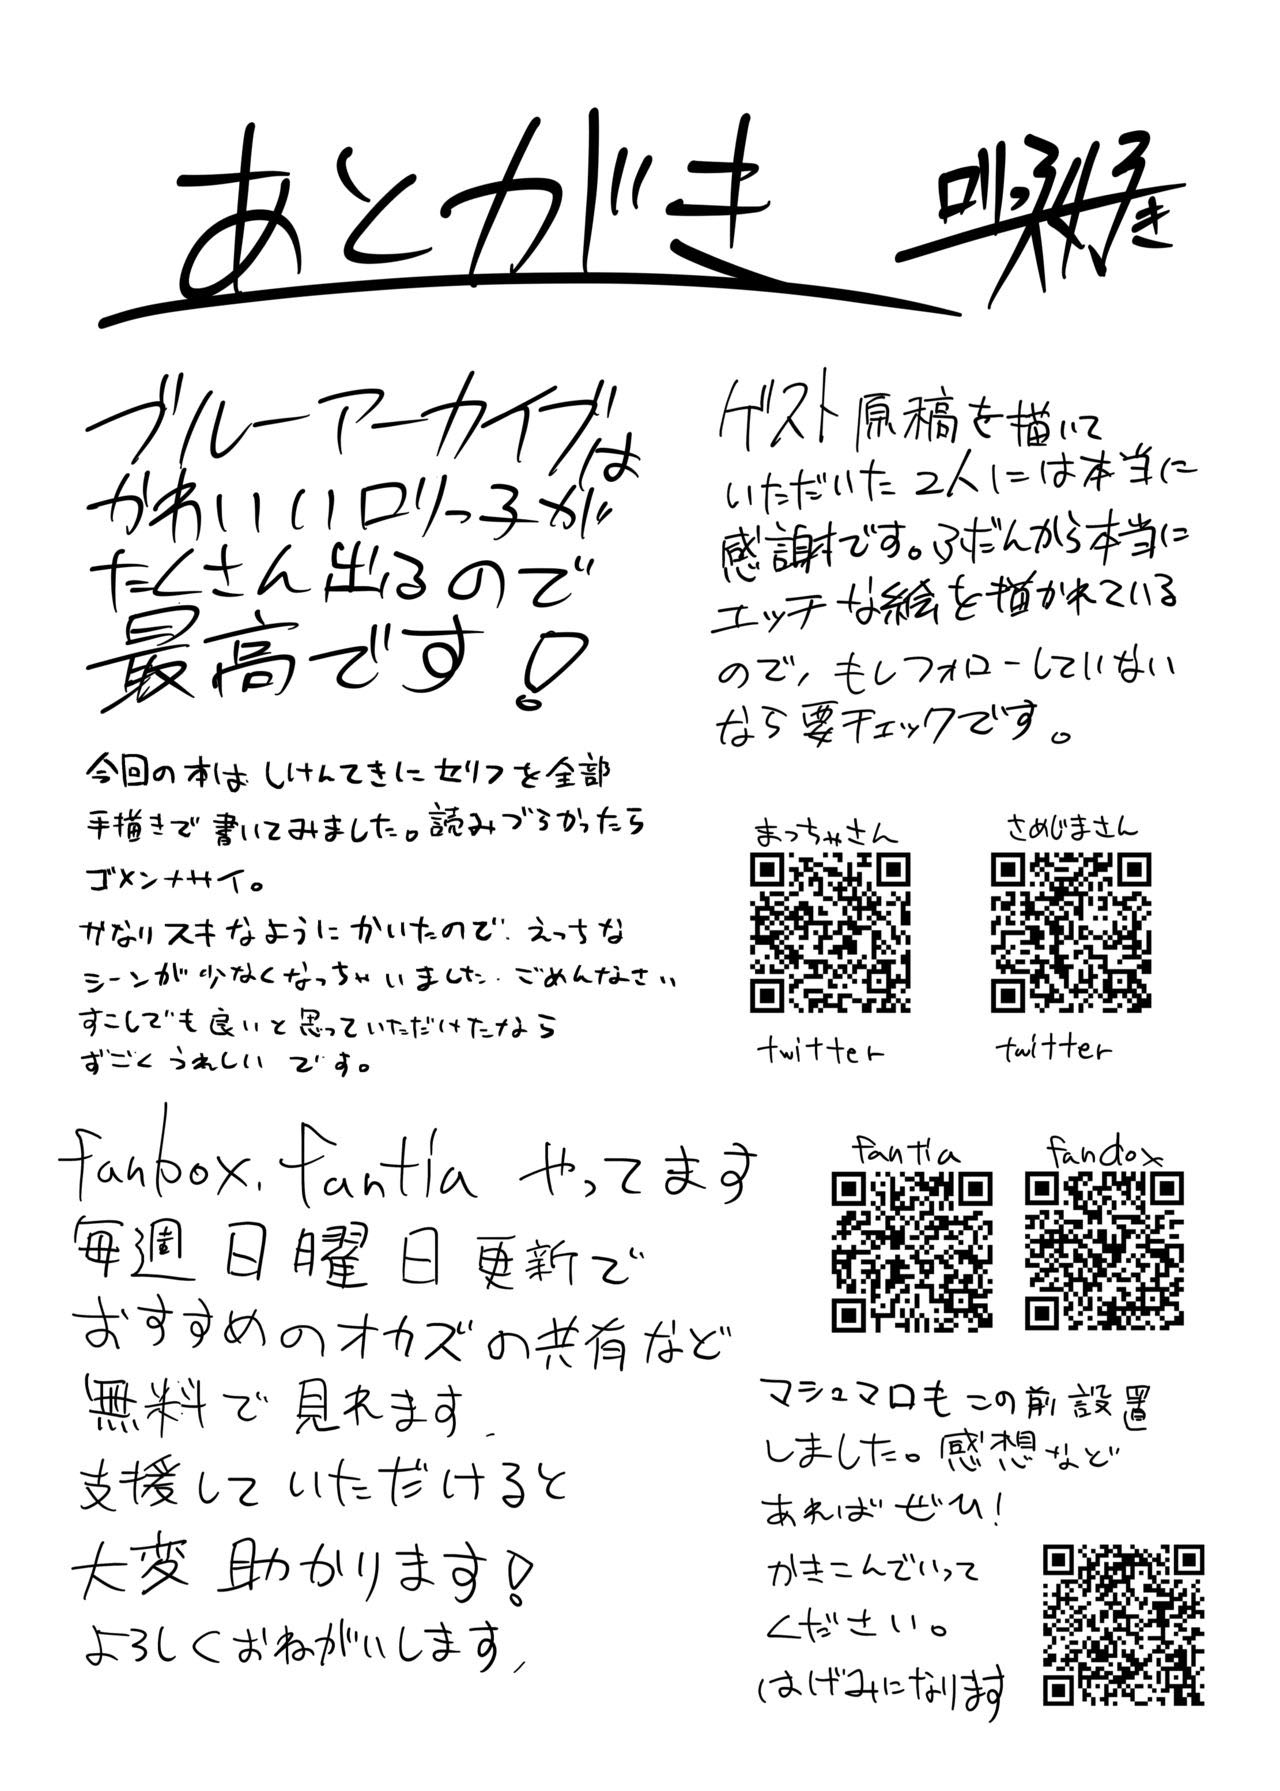 あとがき
ブルーアーカイブは
かわいいロリっ子が
たくさん出るので
最高です！
今回の本は しけんてきに セリフを全部
手描きで 書いてみました。読みづらかったら
ゴメンナサイ。
かなりスキなようにかいたので、えっちな
シーンが少なくなっちゃいました。ごめんなさい
すこしでも良いと思っていただけたなら
すごくうれしい です。
fanbox. fantia やってます
毎週 日曜日 更新で
おすすめのオカズの共有など
無料で見れます、
支援していただけると
大変 助かります！
よろしくおねがいします、
ゲスト原稿を描いて
いただいた2人には本当に
感謝です。ふだんから本当に
エッチな絵を描かれている
ので、もしフォローしていない
なら要チェックです。
まっちゃさん
さめじまさん
twitter
twitter
fantia
fanbox
マシュマロもこの前設置
しました。感想など
あればぜひ！
かきこんでいって
ください。
はげみになります